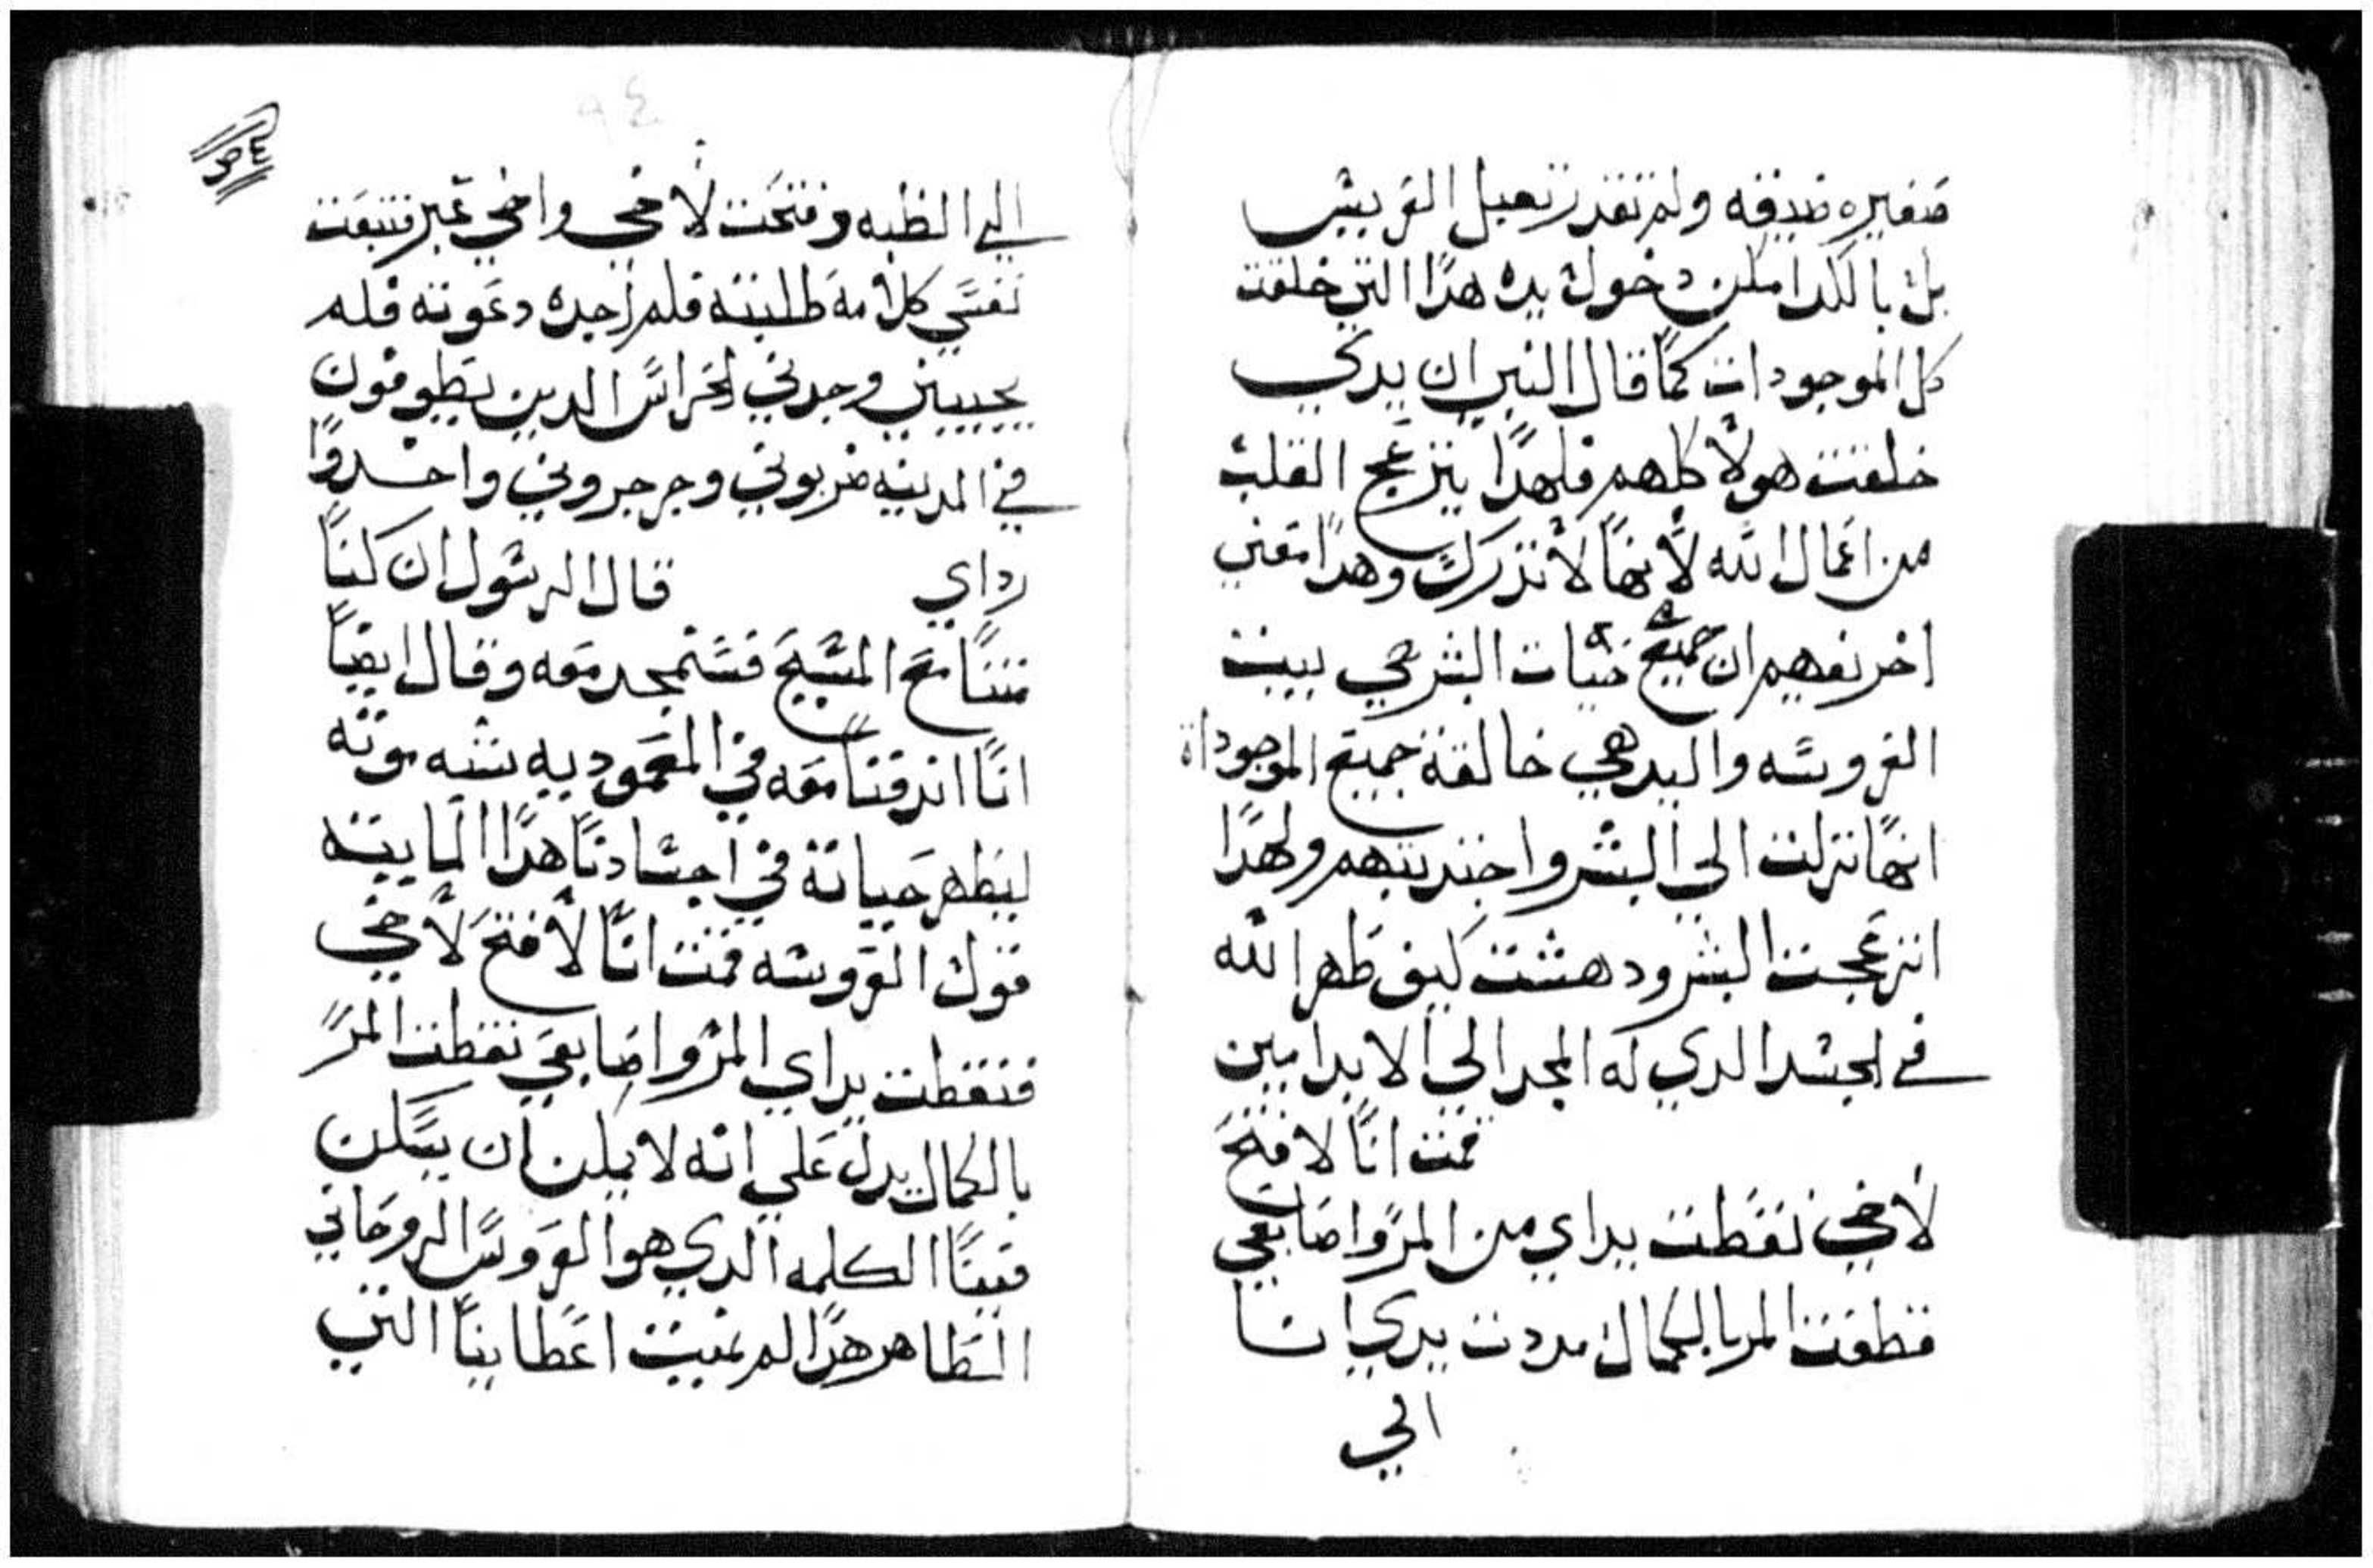 صغيره ضيقه ولم تقدر تقبل العريس
بل بالكد امكن دخول يده هذا التي خلقت
كل الموجودات كما قال النبي ان يدي
خلقت هولا كلهم فلهذا ينزعج القلب
من اعمال الله لانها لا تدرك وهذا معني
اخر نفهم ان جميع البشر هي بيت
العروسه واليد هي خالقة جميع الموجوداة
انها نزلت الي البشر واجتدبتهم ولهذا
انزعجت البشر ودهشت كيف ظهر الله
في الجسد الدي له المجد الي الابد امين
قمت انا لافتح
لاخي نقطت يداي من المر واصابعي
قطفت المر بالكمال مددت يدي انا
الي
الي الظبه وفتحت لاخي واخي عبر فتبعت
نفسي كلامه طلبته فلم اجده دعوته فلم
يجيبني وجدني الحراس الدين يطوفون
في المدينه ضربوني وجرجروني واخدوا
رداي قال الرسول ان كنا
متنا مع المسيح فسنمجد معه وقال ايضا
انا اندفنا معه في المعموديه بشبه موته
ليظهر حياتة في اجسادنا هدا المايته
قول العروسه قمت انا لافتح لاخي
فنقطت يداي المر واصابعي نقطت المر
بالكمال يدل علي انه لا يمكن ان يسكن
فينا الكلمه الدي هو العروس الروحاني
الطاهر هدا لم نميت اعطاينا التي